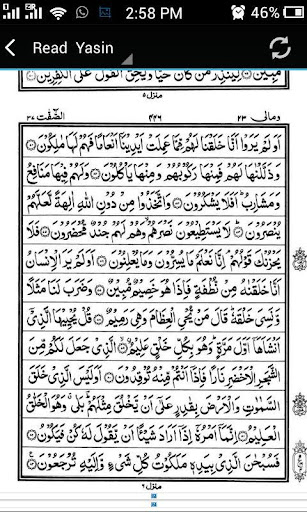 2:58 PM 46%
Read Yasin
مُّبِيْنٌ۝ لِّيُنْذِرَ مَنْ كَانَ حَيًّا وَّيَحِقَّ الْقَوْلُ عَلَى الْكٰفِرِيْنَ۝
منزل ٥
ومالى ٢٣ ٤٤٦ الصّٰفّٰت ٣٧
اَوَلَمْ يَرَوْا اَنَّا خَلَقْنَا لَهُمْ مِّمَّا عَمِلَتْ اَيْدِيْنَاۤ اَنْعَامًا فَهُمْ لَهَا مٰلِكُوْنَ۝
وَذَلَّلْنٰهَا لَهُمْ فَمِنْهَا رَكُوْبُهُمْ وَمِنْهَا يَاْكُلُوْنَ۝ وَلَهُمْ فِيْهَا مَنَافِعُ
وَمَشَارِبُ ؕ اَفَلَا يَشْكُرُوْنَ۝ وَاتَّخَذُوْا مِنْ دُوْنِ اللّٰهِ اٰلِهَةً لَّعَلَّهُمْ
يُنْصَرُوْنَ۝ لَا يَسْتَطِيْعُوْنَ نَصْرَهُمْ وَهُمْ لَهُمْ جُنْدٌ مُّحْضَرُوْنَ۝ فَلَا
يَحْزُنْكَ قَوْلُهُمْ ۘ اِنَّا نَعْلَمُ مَا يُسِرُّوْنَ وَمَا يُعْلِنُوْنَ۝ اَوَلَمْ يَرَ الْاِنْسَانُ
اَنَّا خَلَقْنٰهُ مِنْ نُّطْفَةٍ فَاِذَا هُوَ خَصِيْمٌ مُّبِيْنٌ۝ وَضَرَبَ لَنَا مَثَلًا
وَّنَسِيَ خَلْقَهٗ ؕ قَالَ مَنْ يُّحْيِ الْعِظَامَ وَهِيَ رَمِيْمٌ۝ قُلْ يُحْيِيْهَا الَّذِيْۤ
اَنْشَاَهَاۤ اَوَّلَ مَرَّةٍ ؕ وَهُوَ بِكُلِّ خَلْقٍ عَلِيْمٌ۝ اۨلَّذِيْ جَعَلَ لَكُمْ مِّنَ
الشَّجَرِ الْاَخْضَرِ نَارًا فَاِذَاۤ اَنْتُمْ مِّنْهُ تُوْقِدُوْنَ۝ اَوَلَيْسَ الَّذِيْ خَلَقَ
السَّمٰوٰتِ وَالْاَرْضَ بِقٰدِرٍ عَلٰۤى اَنْ يَّخْلُقَ مِثْلَهُمْ ؕ بَلٰى ۗ وَهُوَ الْخَلّٰقُ
الْعَلِيْمُ۝ اِنَّمَاۤ اَمْرُهٗۤ اِذَاۤ اَرَادَ شَيْـًٔا اَنْ يَّقُوْلَ لَهٗ كُنْ فَيَكُوْنُ۝
فَسُبْحٰنَ الَّذِيْ بِيَدِهٖ مَلَكُوْتُ كُلِّ شَيْءٍ وَّاِلَيْهِ تُرْجَعُوْنَ۝
منزل ٦